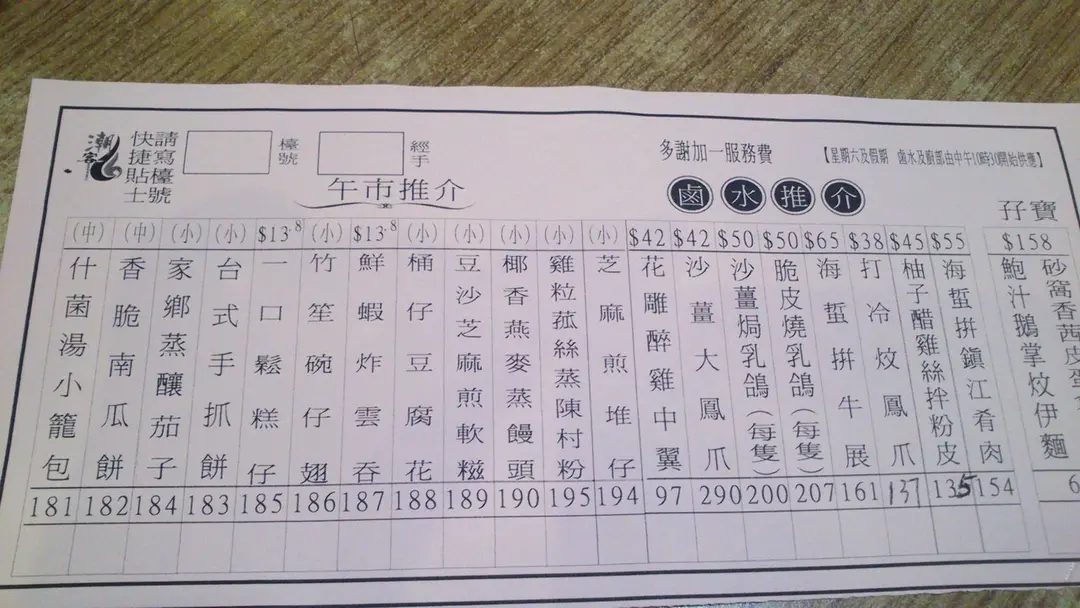 潮客
請寫檯號
快捷貼士
檯號
經手
多謝加一服務費
【星期六及假期 鹵水及廚部由中午10時30開始供應】
午市推介
(中) 什菌湯小籠包 181
(中) 香脆南瓜餅 182
(小) 家鄉蒸釀茄子 184
(小) 台式手抓餅 183
$13.8 一口鬆糕仔 185
(小) 竹笙碗仔翅 186
$13.8 鮮蝦炸雲吞 187
(小) 桶仔豆腐花 188
(小) 豆沙芝麻煎軟糍 189
(小) 椰香燕麥蒸饅頭 190
(小) 雞粒菰絲蒸陳村粉 195
(小) 芝麻煎堆仔 194
鹵水推介
$42 花雕醉雞中翼 97
$42 沙薑大鳳爪 290
$50 沙薑焗乳鴿(每隻) 200
$50 脆皮燒乳鴿(每隻) 207
$65 海蜇拼牛展 161
$38 打冷炆鳳爪 137
$45 柚子醋雞絲拌粉皮 135
$55 海蜇拼鎮江肴肉 154
孖寶
$158
砂窩香茜皮蛋
鮑汁鵝掌炆伊麵
6